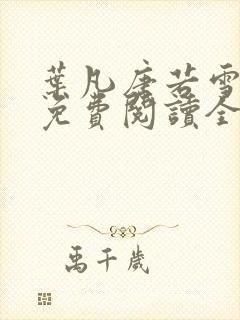 葉凡唐若雪
免費閱讀全
禹千歲